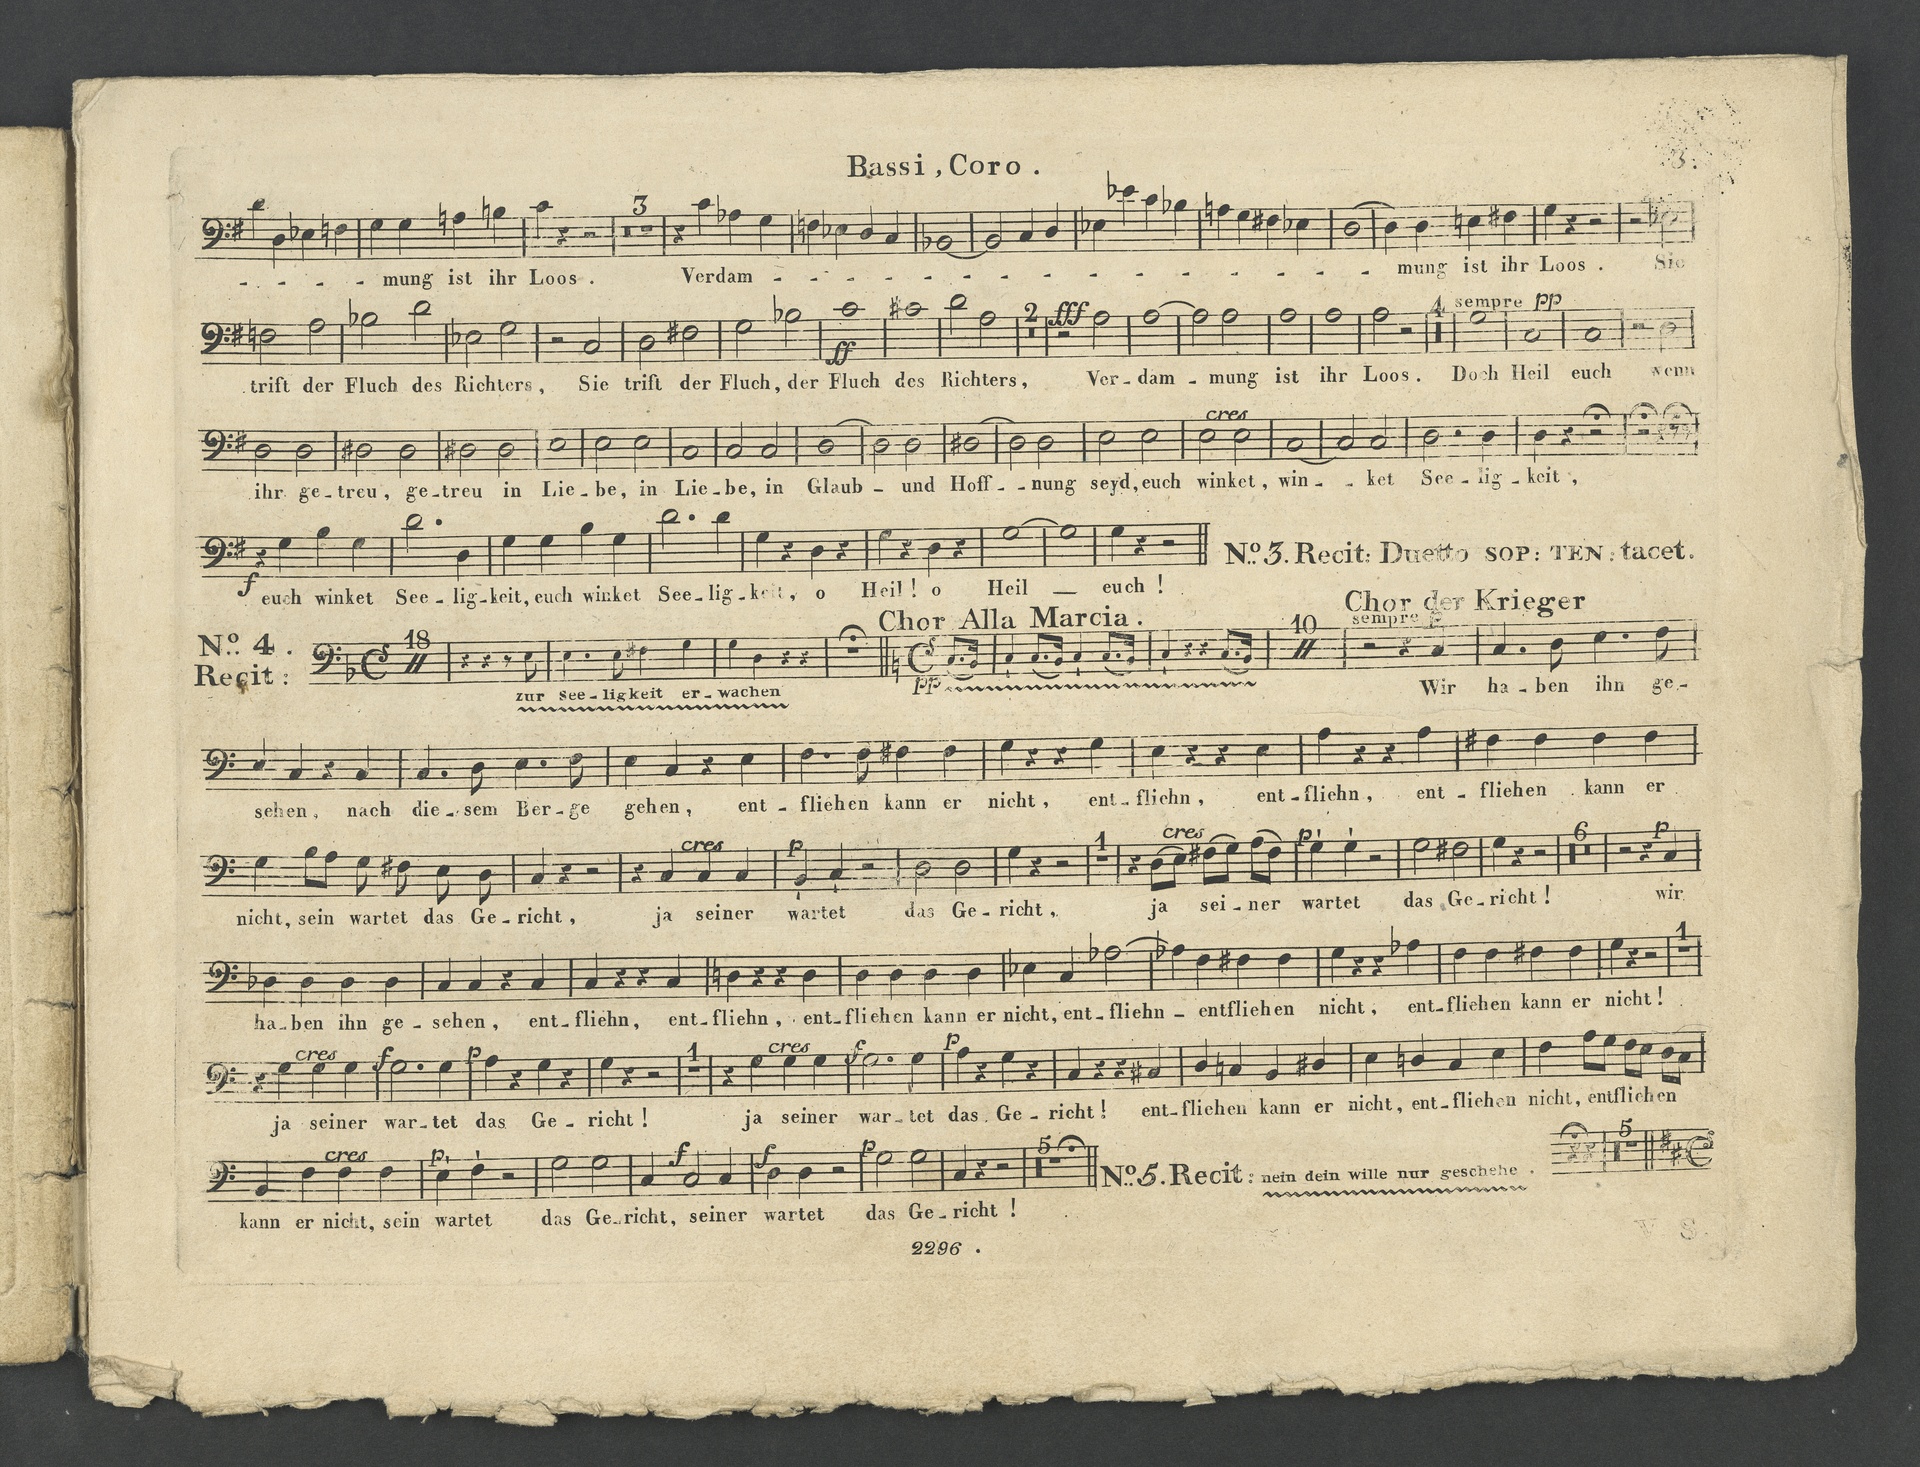 Bassi, Coro.
3.
3
- - - - mung ist ihr Loos. Verdam - - - - - - - - - - - - mung ist ihr Loos. Sie
ff 2 fff 4 sempre pp
trift der Fluch des Richters, Sie trift der Fluch, der Fluch des Richters, Ver-dam-mung ist ihr Loos. Doch Heil euch wenn
cres
ihr ge-treu, ge-treu in Lie-be, in Lie-be, in Glaub- und Hoff--nung seyd, euch winket, win-- ket See-lig-keit,
f
No. 3. Recit: Duetto SOP: TEN: tacet.
euch winket See-lig-keit, euch winket See-lig-keit, o Heil! o Heil — euch!
Chor Alla Marcia. Chor der Krieger
No. 4. Recit: 18 pp 10 sempre p
zur see-ligkeit er-wachen Wir ha-ben ihn ge-
sehen, nach die-sem Ber-ge gehen, ent-fliehen kann er nicht, ent-fliehn, ent-fliehn, ent-fliehen kann er
cres p 1 cres p 6 p
nicht, sein wartet das Ge-richt, ja seiner wartet das Ge-richt, ja sei-ner wartet das Ge-richt! wir
1
ha-ben ihn ge-sehen, ent-fliehn, ent-fliehn, ent-fliehen kann er nicht, ent-fliehn - entfliehen nicht, ent-fliehen kann er nicht!
cres f p 1 cres f p
ja seiner war-tet das Ge-richt! ja seiner war-tet das Ge-richt! ent-fliehen kann er nicht, ent-fliehen nicht, entfliehen
cres p f f p 5 No. 5. Recit: nein dein wille nur geschehe. 5
kann er nicht, sein wartet das Ge-richt, seiner wartet das Ge-richt!
V. S.
2296.